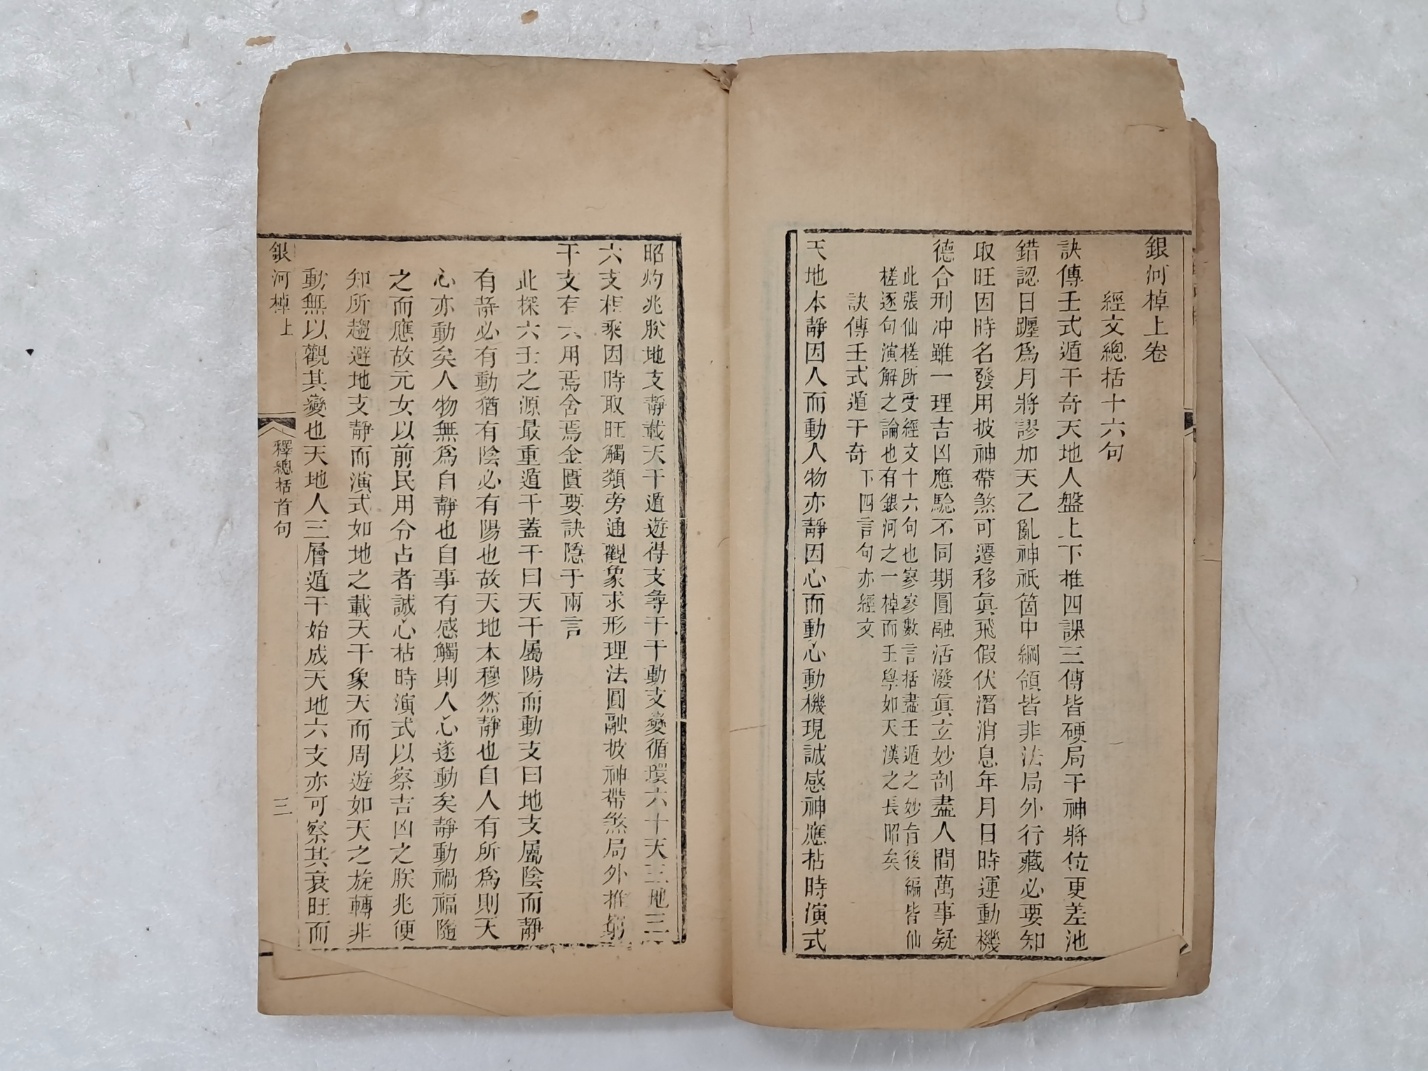 銀河棹上卷
經文總括十六句
訣傳壬式遁干奇天地人盤上下推四課三傳皆硬局干神將位更差池
錯認日躔爲月將謬加天乙亂神祇箇中綱領皆非法局外行藏必要知
取旺因時名發用披神帶煞可遷移眞飛假伏潛消息年月日時運動機
德合刑冲雖一理吉凶應驗不同期圓融活潑眞立妙剖盡人間萬事疑
此張仙槎所受經文十六句也寥寥數言括盡壬遁之妙旨後編皆仙
槎逐句演解之論也有銀河之一棹而壬學如天漢之長昭矣
訣傳壬式遁干奇 下四言句亦經文
天地本靜因人而動人物亦靜因心而動心動機現誠感神應拈時演式
昭灼兆朕地支靜載天干遁遊得支尋干干動支變循環六十天三地三
六支相乘因時取旺觸類旁通觀象求形理法圓融披神帶煞局外推窮
干支有六用焉舍焉金匱要訣隱于兩言
此探六壬之源最重遁干蓋干曰天干屬陽而動支曰地支屬陰而靜
有靜必有動猶有陰必有陽也故天地本穆然靜也自人有所爲則天
心亦動矣人物無爲自靜也自事有感觸則人心遂動矣靜動禍福隨
之而應故元女以前民用令占者誠心拈時演式以察吉凶之朕兆便
知所趨避地支靜而演式如地之載天干象天而周遊如天之旋轉非
動無以觀其變也天地人三層遁干始成天地六支亦可察其衰旺而
銀河棹上
釋總括首句
三